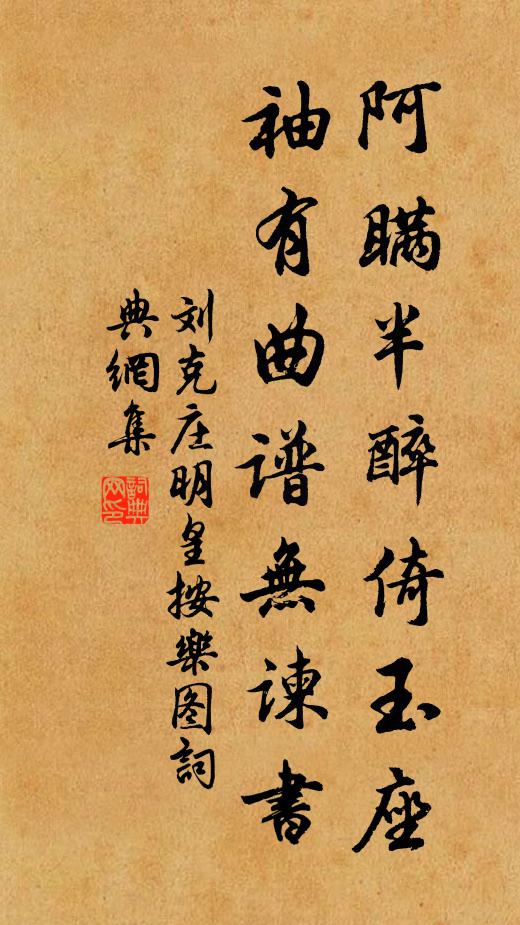 阿瞞半醉倚玉座
袖有曲谱無諫書
刘克庄明皇按樂图詞
典網集
詞典
网印